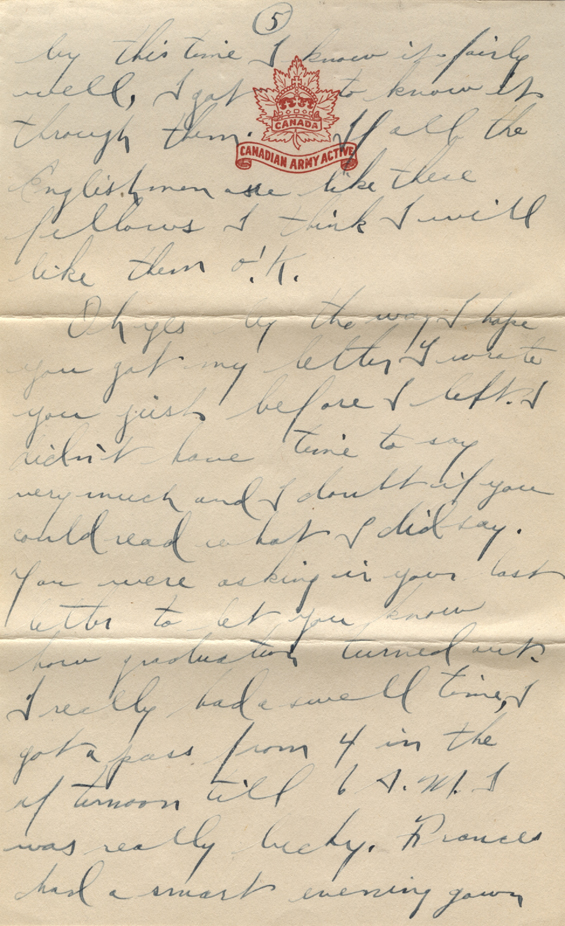 5
by this time I know it fairly
well, I got to know it
through them. If all the
CANADA
CANADIAN ARMY ACTIVE
Englishmen are like these
fellows I think I will
like them O.K.
Oh yes by the way I hope
you got my letter I wrote
you just before I left. I
didn't have time to say
very much and I doubt if you
could read what I did say.
You were asking in your last
letter to let you know
how graduation turned out.
I really had a swell time, I
got a pass from 4 in the
afternoon till 6 A.M. I
was really lucky. Frances
had a smart evening gown